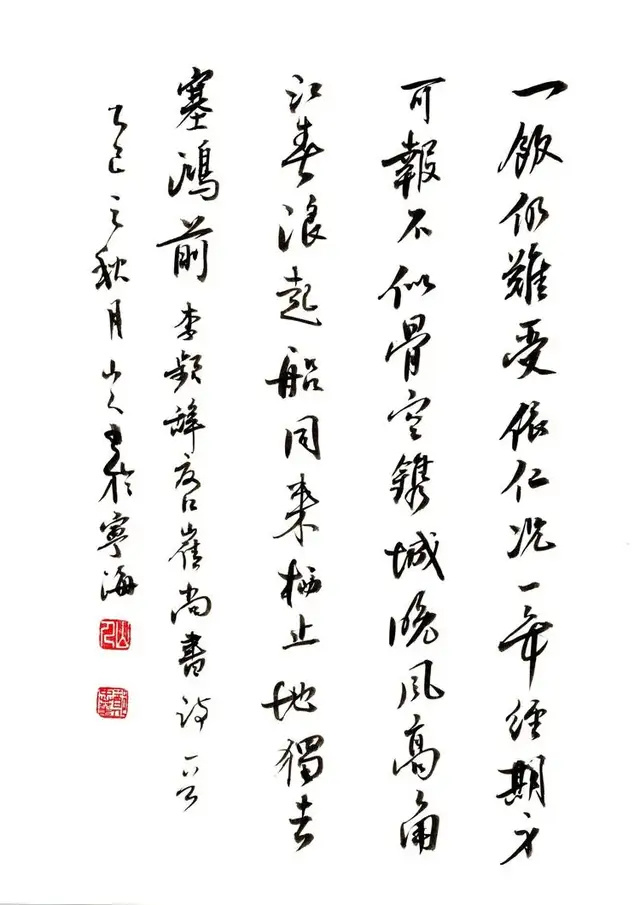 一飯仍難受依仁況一年經期身
可報不似骨空鐫城晚風高角
江春浪起船同来栖止地獨去
塞鴻前 李頻辞夏口崔尚書詩一首
乙巳之秋月山人書於寧海